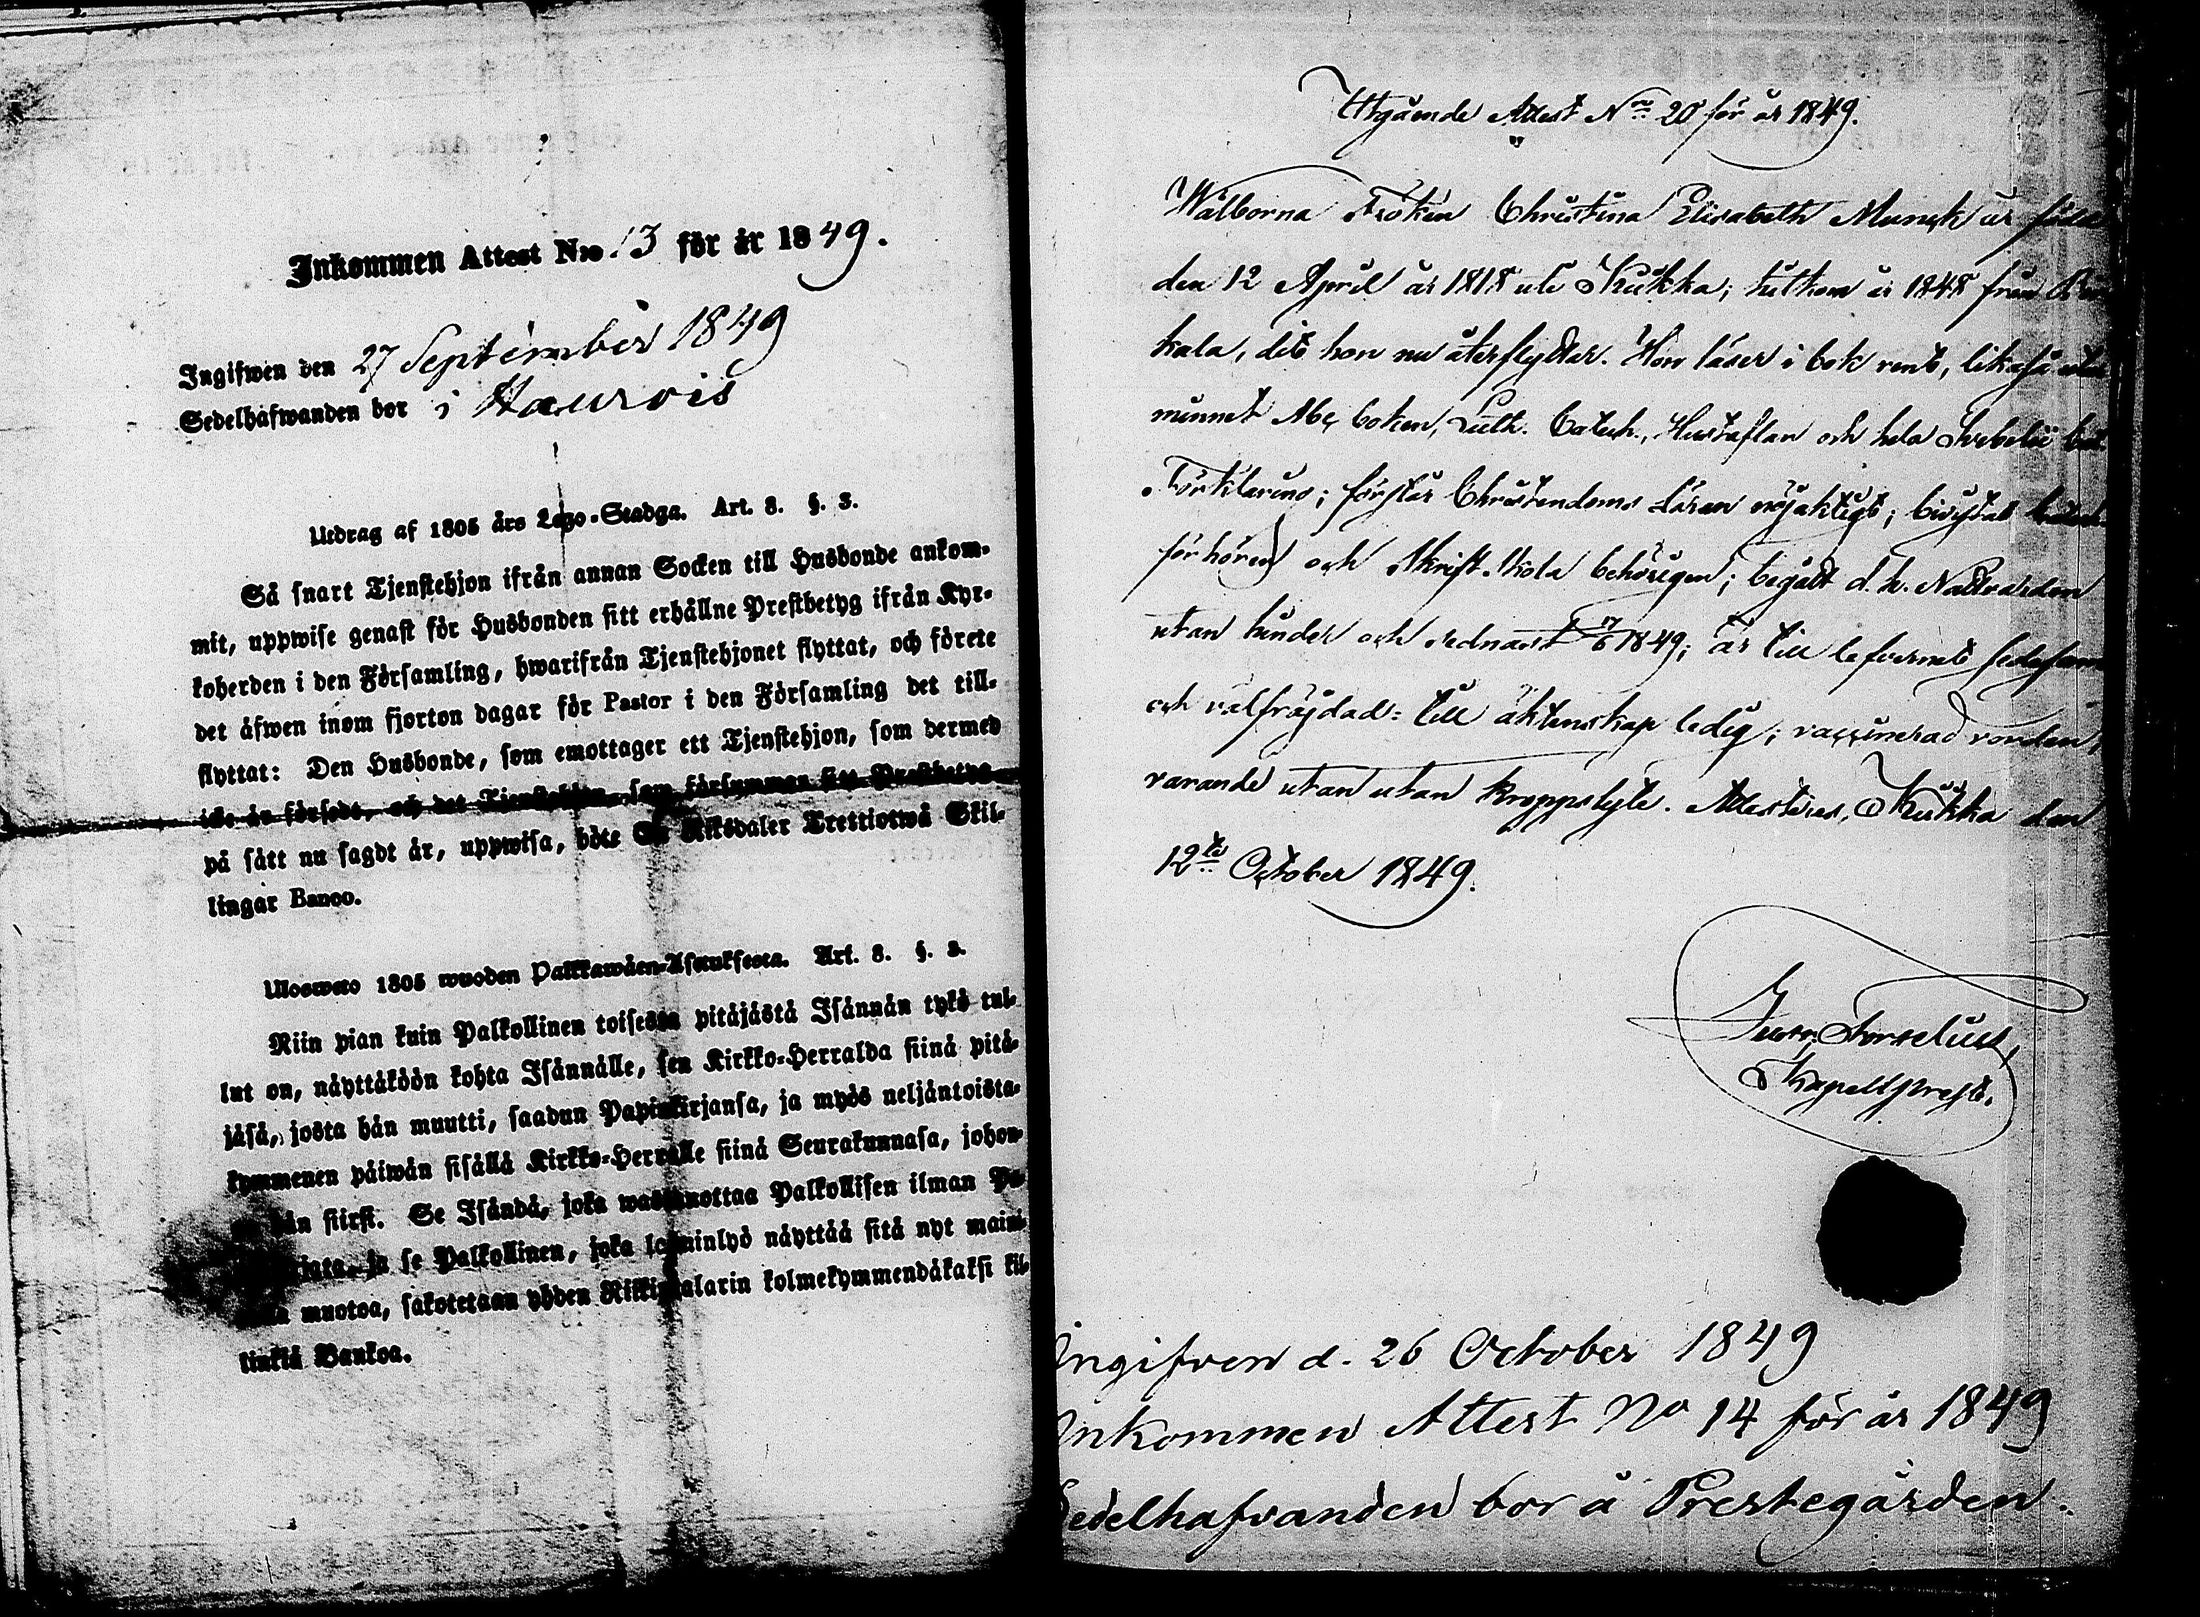 Inkommen Attest N:ro 13 för år 1849.
Ingifwen den 27 September 1849
Sedelhafwanden bor i Haurois
Utdrag af 1805 års Lego-Stadga. Art. 8. §. 3.
Så snart Tjenstehjon ifrån annan Socken till Husbonde ankom-
mit, uppwise genast för Husbonden sitt erhållne Prestbetyg ifrån Kyr-
koherden i den Församling, hwarifrån Tjenstehjonet flyttat, och förete
det äfwen inom fjorton dagar för Pastor i den Församling det till-
flyttat: Den Husbonde, som emottager ett Tjenstehjon, som dermed
icke är försedt, och det Tjenstehjon, som försummar sitt Prestbetyg
på sätt nu sagdt är, uppwisa, böte En Riksdaler Trettiotwå Skil-
lingar Banco.
Ulosweto 1805 wuoden Palkkawäen-Asetuksesta. Art. 8. §. 3.
Niin pian kuin Palkollinen toisesta pitäjästä Isännän tykö tul-
lut on, näyttäköön kohta Isännälle, sen Kirkko-Herralda siinä pitä-
jäsä, josta hän muutti, saadun Papinkirjansa, ja myös neljäntoista-
kymmenen päiwän sisällä Kirkko-Herralle siinä Seurakunnasa, johon-
hän siirsi. Se Isändä, joka wastanottaa Palkollisen ilman Pa-
ja se Palkollinen, joka laiminlyö näyttää sitä nyt maini-
muotoa, sakotetaan yhden Riikintalarin kolmekymmendäkaksi kil-
linkiä Bankoa.
Utgående Attest N:ro 20 för år 1849.
Wälborna Fröken Christina Elisabeth Munck är född
den 12 April år 1818 uti Kukka; hitkom år 1848 från
kala, dit hon nu återflyttar. Hon läser i bok rent, likaså utur
minnet Abc boken, Luth. Catech., Hustaflan och hela Svebelii
Förklaring; förstår Christendoms Läran nöjaktigt; bivistat
förhören och Skriftskola behörigen; begått d. h. Nattvarden
utan hinder och sednast 17/6 1849; är till lefvernet sedesam
och välfräjdad: till äktenskap ledig; vaccinerad vorden,
varande utan utan kroppslyte. Attesteras, Kukka den
12te October 1849.
Forselius,
Kapellprest.
Ingifven d. 26 October 1849
Inkommen Attest No 14 för år 1849
Sedelhafvanden bor å Prestegården.